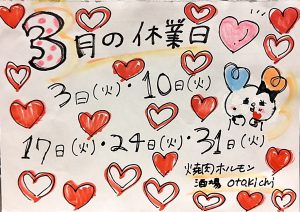 3月の休業日
3日(火)・10日(火)
17日(火)・24日(火)・31日(火)
焼肉ホルモン
酒場 otakichi